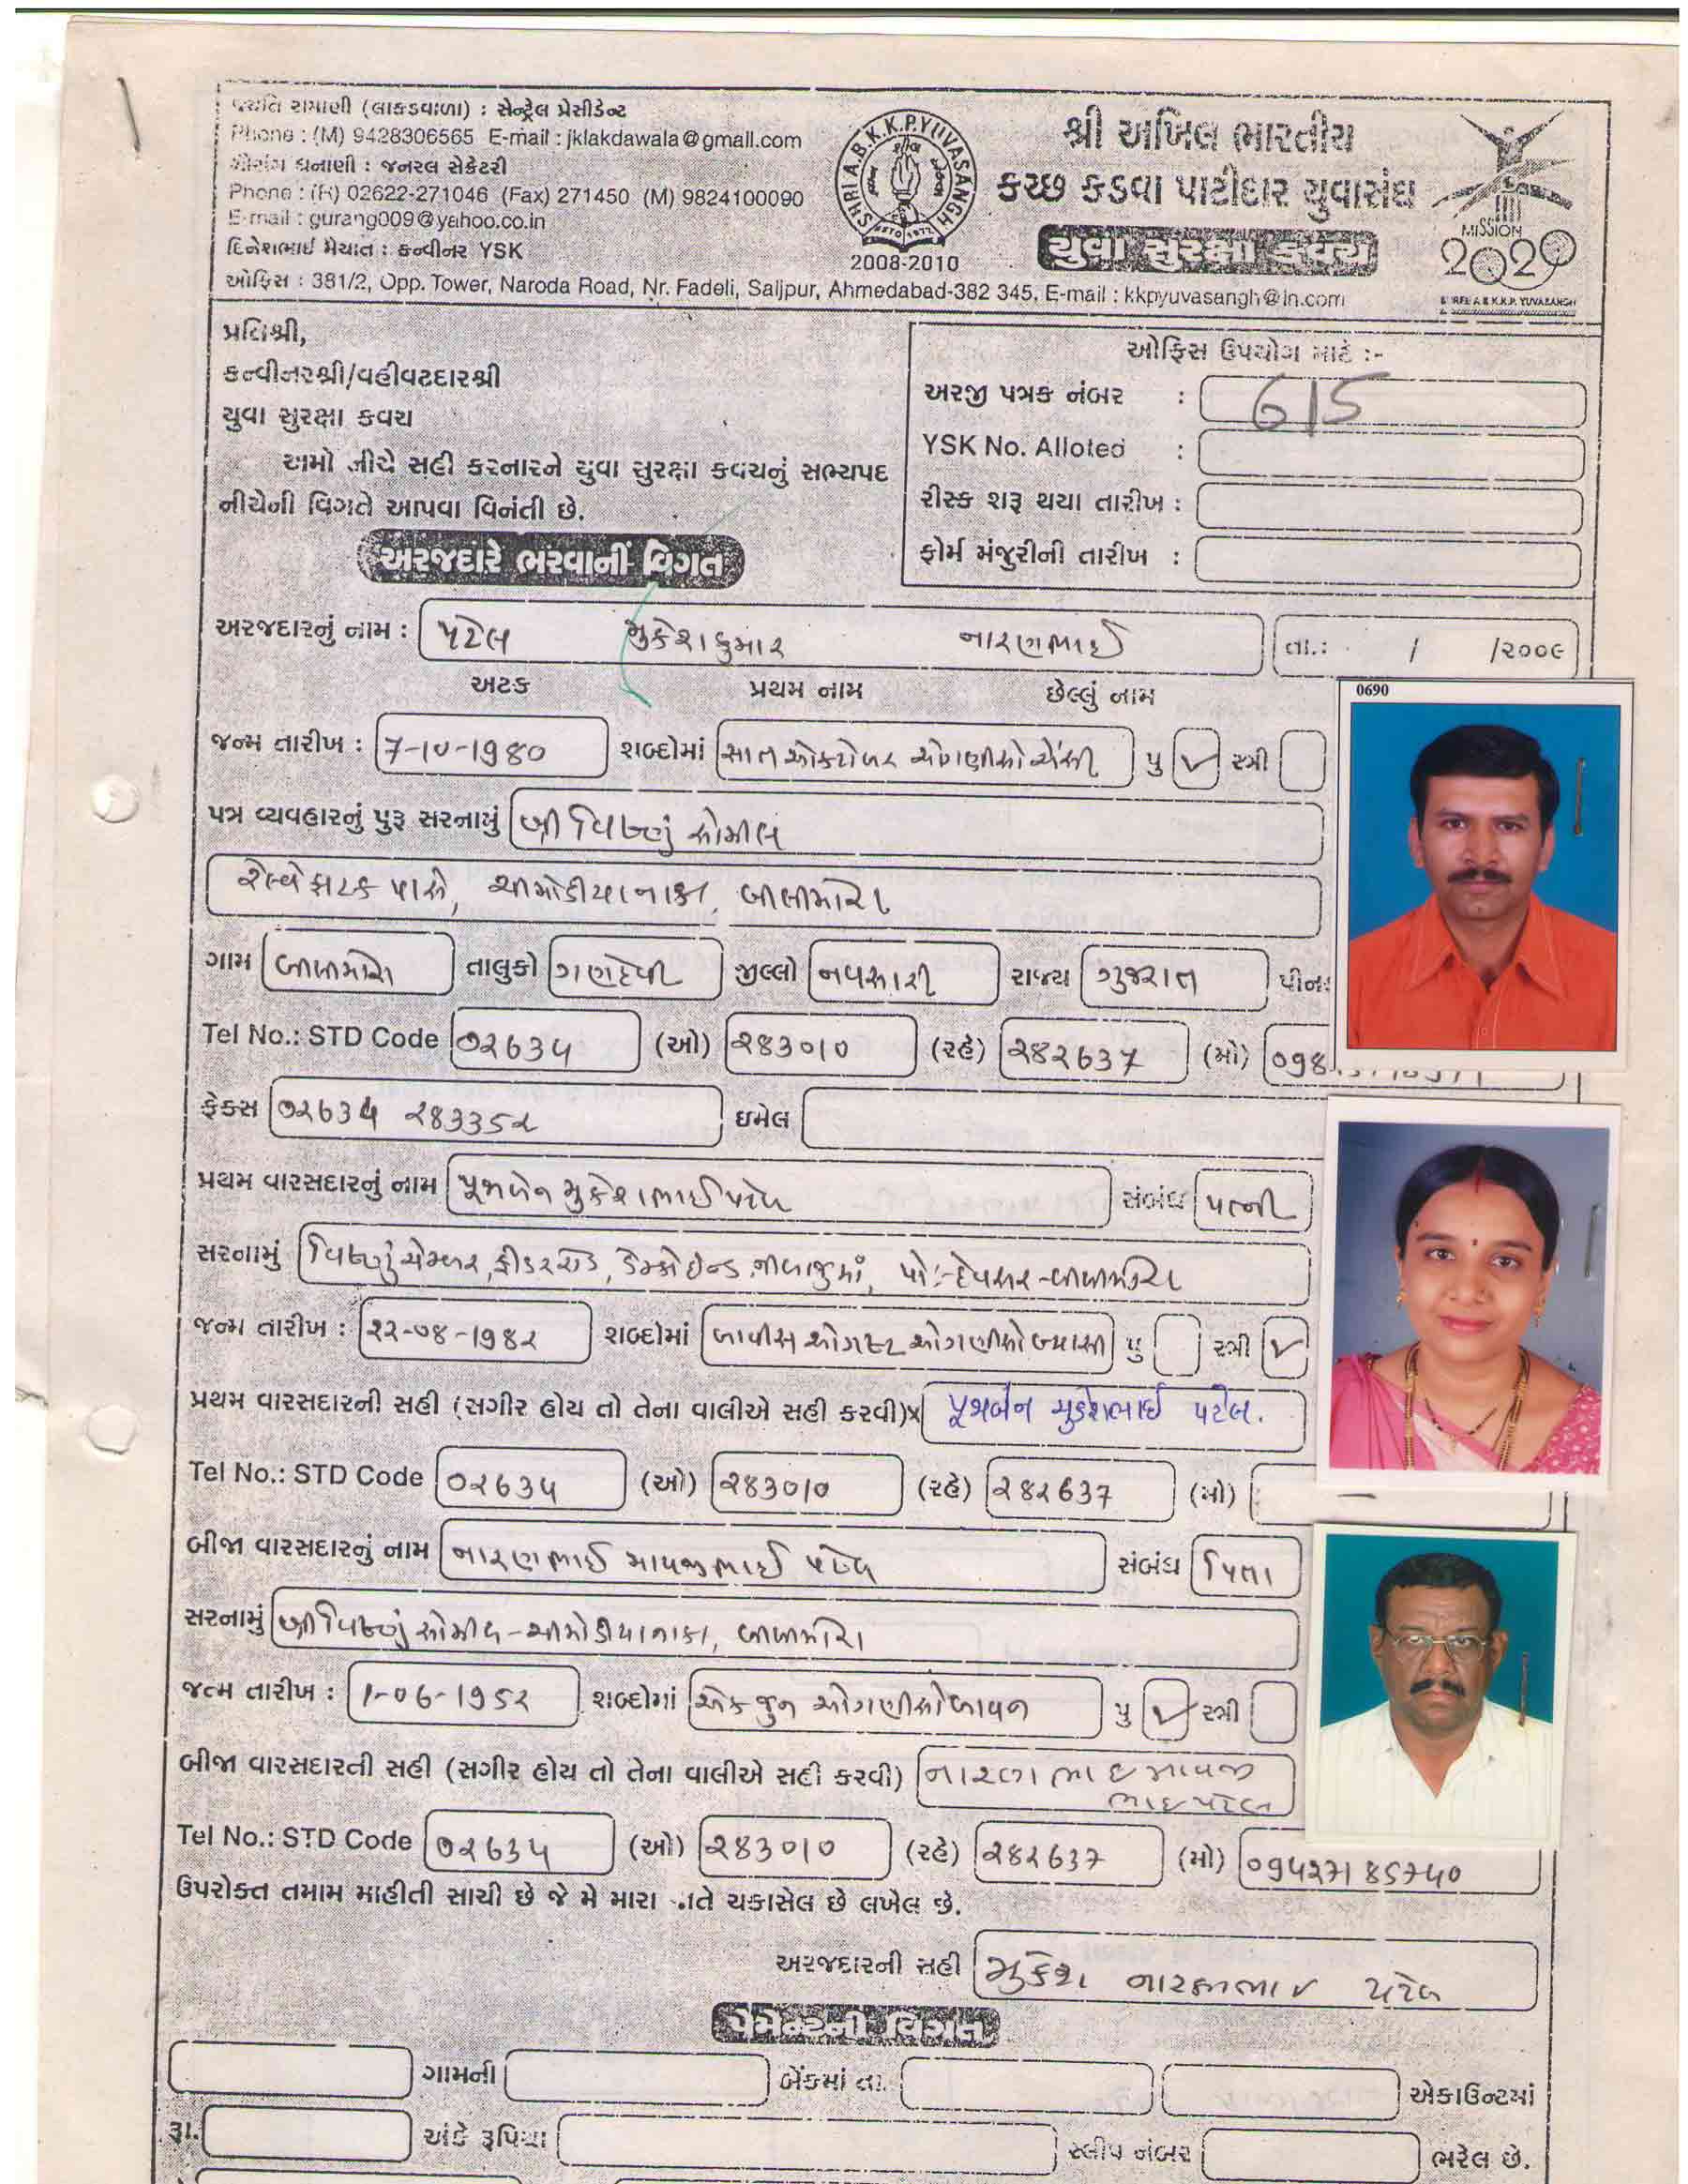 જયંતિ રામાણી (લાકડાવાળા) : સેન્ટ્રેલ પ્રેસીડેન્ટ
Phone : (M) 9428306565 E-mail : jklakdawala@gmail.com
ગૌરાંગ ધનાણી : જનરલ સેક્રેટરી
Phone : (R) 02622-271046 (Fax) 271450 (M) 9824100090
E-mail : gurang009@yahoo.co.in
દિનેશભાઈ મેચાત : કન્વીનર YSK
ઓફિસ : 381/2, Opp. Tower, Naroda Road, Nr. Fadeli, Saijpur, Ahmedabad-382 345, E-mail : kkpyuvasangh@in.com
SHRI A.B.K.K.P. YUVASANGH
ESTD 1977
2008-2010
શ્રી અખિલ ભારતીય
કચ્છ કડવા પાટીદાર યુવાસંઘ
યુવા સુરક્ષા કવચ
MISSION
2020
SHREE A.B.K.K.P. YUVASANGH
પ્રતિશ્રી,
કન્વીનરશ્રી/વહીવટદારશ્રી
યુવા સુરક્ષા કવચ
અમો નીચે સહી કરનારને યુવા સુરક્ષા કવચનું સભ્યપદ
નીચેની વિગતે આપવા વિનંતી છે.
ઓફિસ ઉપયોગ માટે :-
અરજી પત્રક નંબર : 615
YSK No. Alloted :
રીસ્ક શરૂ થયા તારીખ :
ફોર્મ મંજુરીની તારીખ :
અરજદારે ભરવાની વિગત
અરજદારનું નામ : પટેલ મુકેશકુમાર નારણભાઈ તા.: / /૨૦૦૯
અટક પ્રથમ નામ છેલ્લું નામ
0690
જન્મ તારીખ : 7-10-1980 શબ્દોમાં સાત ઓક્ટોબર ઓગણીસો એંસી પુ ✓ સ્ત્રી
પત્ર વ્યવહારનું પુરૂ સરનામું શ્રી વિષ્ણું સોમીલ
રેલ્વે ફાટક પાસે, આમોડીયા નાકા, બીલીમોરા
ગામ બીલીમોરા તાલુકો ગણદેવી જીલ્લો નવસારી રાજ્ય ગુજરાત પીન:
Tel No.: STD Code ૦૨634 (ઓ) ૨૪3010 (રહે) ૨૪૨637 (મો) 098
ફેક્સ ૦૨634 ૨૪335૨ ઇમેલ
પ્રથમ વારસદારનું નામ પૂજાબેન મુકેશભાઈ પટેલ સંબંધ પત્ની
સરનામું વિષ્ણું ચેમ્બર, ફીડર રોડ, ડેમ્કો ઇન્ડ.નીબાજુમાં, પો:-દેવસર-બીલીમોરા
જન્મ તારીખ : ૨૨-૦૪-19૪૨ શબ્દોમાં બાવીસ ઓગષ્ટ ઓગણીસો બ્યાસી પુ સ્ત્રી ✓
પ્રથમ વારસદારની સહી (સગીર હોય તો તેના વાલીએ સહી કરવી)x પૂજાબેન મુકેશભાઈ પટેલ.
Tel No.: STD Code ૦૨634 (ઓ) ૨૪3010 (રહે) ૨૪૨637 (મો) —
બીજા વારસદારનું નામ નારણભાઈ માવજીભાઈ પટેલ સંબંધ પિતા
સરનામું શ્રી વિષ્ણું સોમીલ-આમોડીયાનાકા, બીલીમોરા
જન્મ તારીખ : 1-06-195૨ શબ્દોમાં એક જુન ઓગણીસોબાવન પુ ✓ સ્ત્રી
બીજા વારસદારની સહી (સગીર હોય તો તેના વાલીએ સહી કરવી) નારણભાઇ માવજી
ભાઇ પટેલ
Tel No.: STD Code ૦૨634 (ઓ) ૨૪3010 (રહે) ૨૪૨637 (મો)
ઉપરોક્ત તમામ માહીતી સાચી છે જે મે મારા ાતે ચકાસેલ છે લખેલ છે.
અરજદારની સહી મુકેશ નારણભાઇ પટેલ
પેમેન્ટની વિગત
ગામની બેંકમાં તા. એકાઉન્ટમાં
રૂા. અંકે રૂપિયા સ્લીપ નંબર ભરેલ છે.